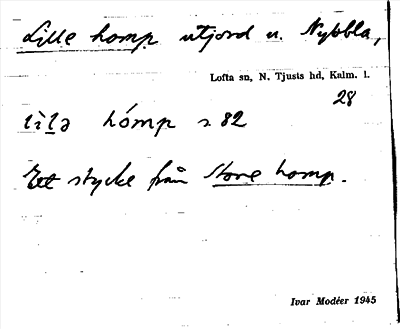 Lille homp utjord u. Nybbla,
Lofta sn, N. Tjusts hd, Kalm. l.
28
lìlə hómp s 82
Ett stycke från Store homp.
Ivar Modéer 1945